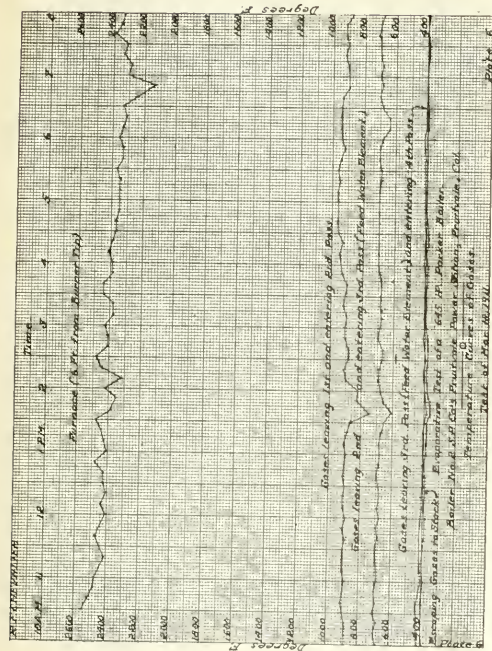 R.F. CHEVALIER
Time
10 A.M. 11 12 1 P.M. 2 3 4 5 6 7 8
2600
2400
2200
2000
1800
1600
1400
1200
1000
800
600
400
Degrees F.
2600
2400
2200
2000
1800
1600
1400
1200
1000
800
600
400
Degrees F.
Furnace (6 Ft. from Burner Tip)
Gases leaving 1st and entering 2nd Pass
Gases leaving 2nd and entering 3rd Pass (Feed Water Element)
Gases leaving 3rd Pass (Feed Water Element) and entering 4th Pass
Escaping Gases to Stack
Evaporative Test of a 645 HP. Parker Boiler
Boiler No. 2 S.P. Co's Fruitvale Power Station, Fruitvale, Cal.
Temperature Curves of Gases
Test of Mar. 16, 1911
Plate 6
Plate 6